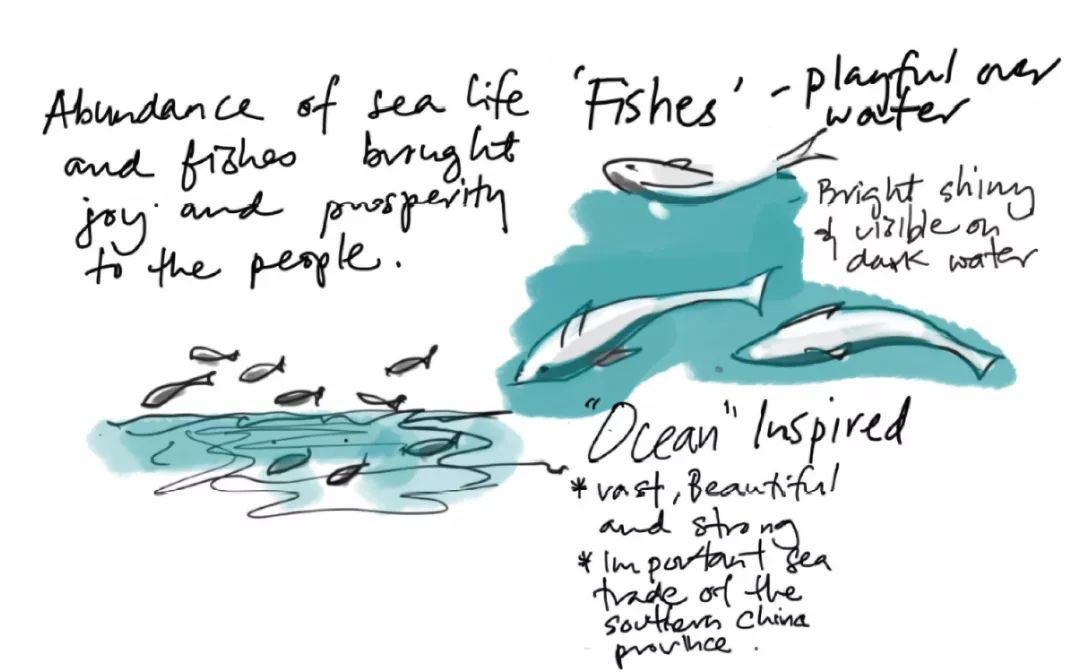 Abundance of sea life
and fishes brought
joy and prosperity
to the people.
'Fishes' - playful over
water
Bright shiny
& visible on
dark water
"Ocean" Inspired
* vast, Beautiful
and strong
* Important sea
trade of the
southern China
province.